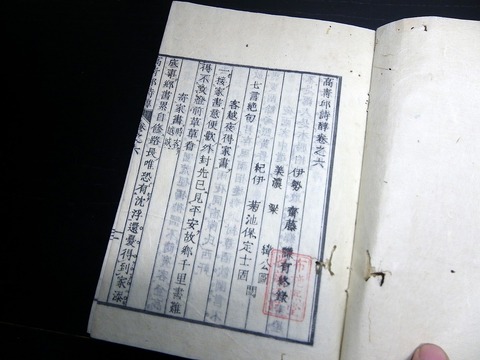 高青邱詩醇卷之六
伊勢 齋藤 謙有終錄
美濃 梁 緯公圖
紀伊 菊池保定士固 閱
七言絶句
客越夜得家書
一接家書意便歡外封先已見平安故鄉千里書難
得不敢燈前草草看
寄家書
底事鄉書累自修路長唯恐有沈浮還憂得到家添
高青邱詩醇 卷之六